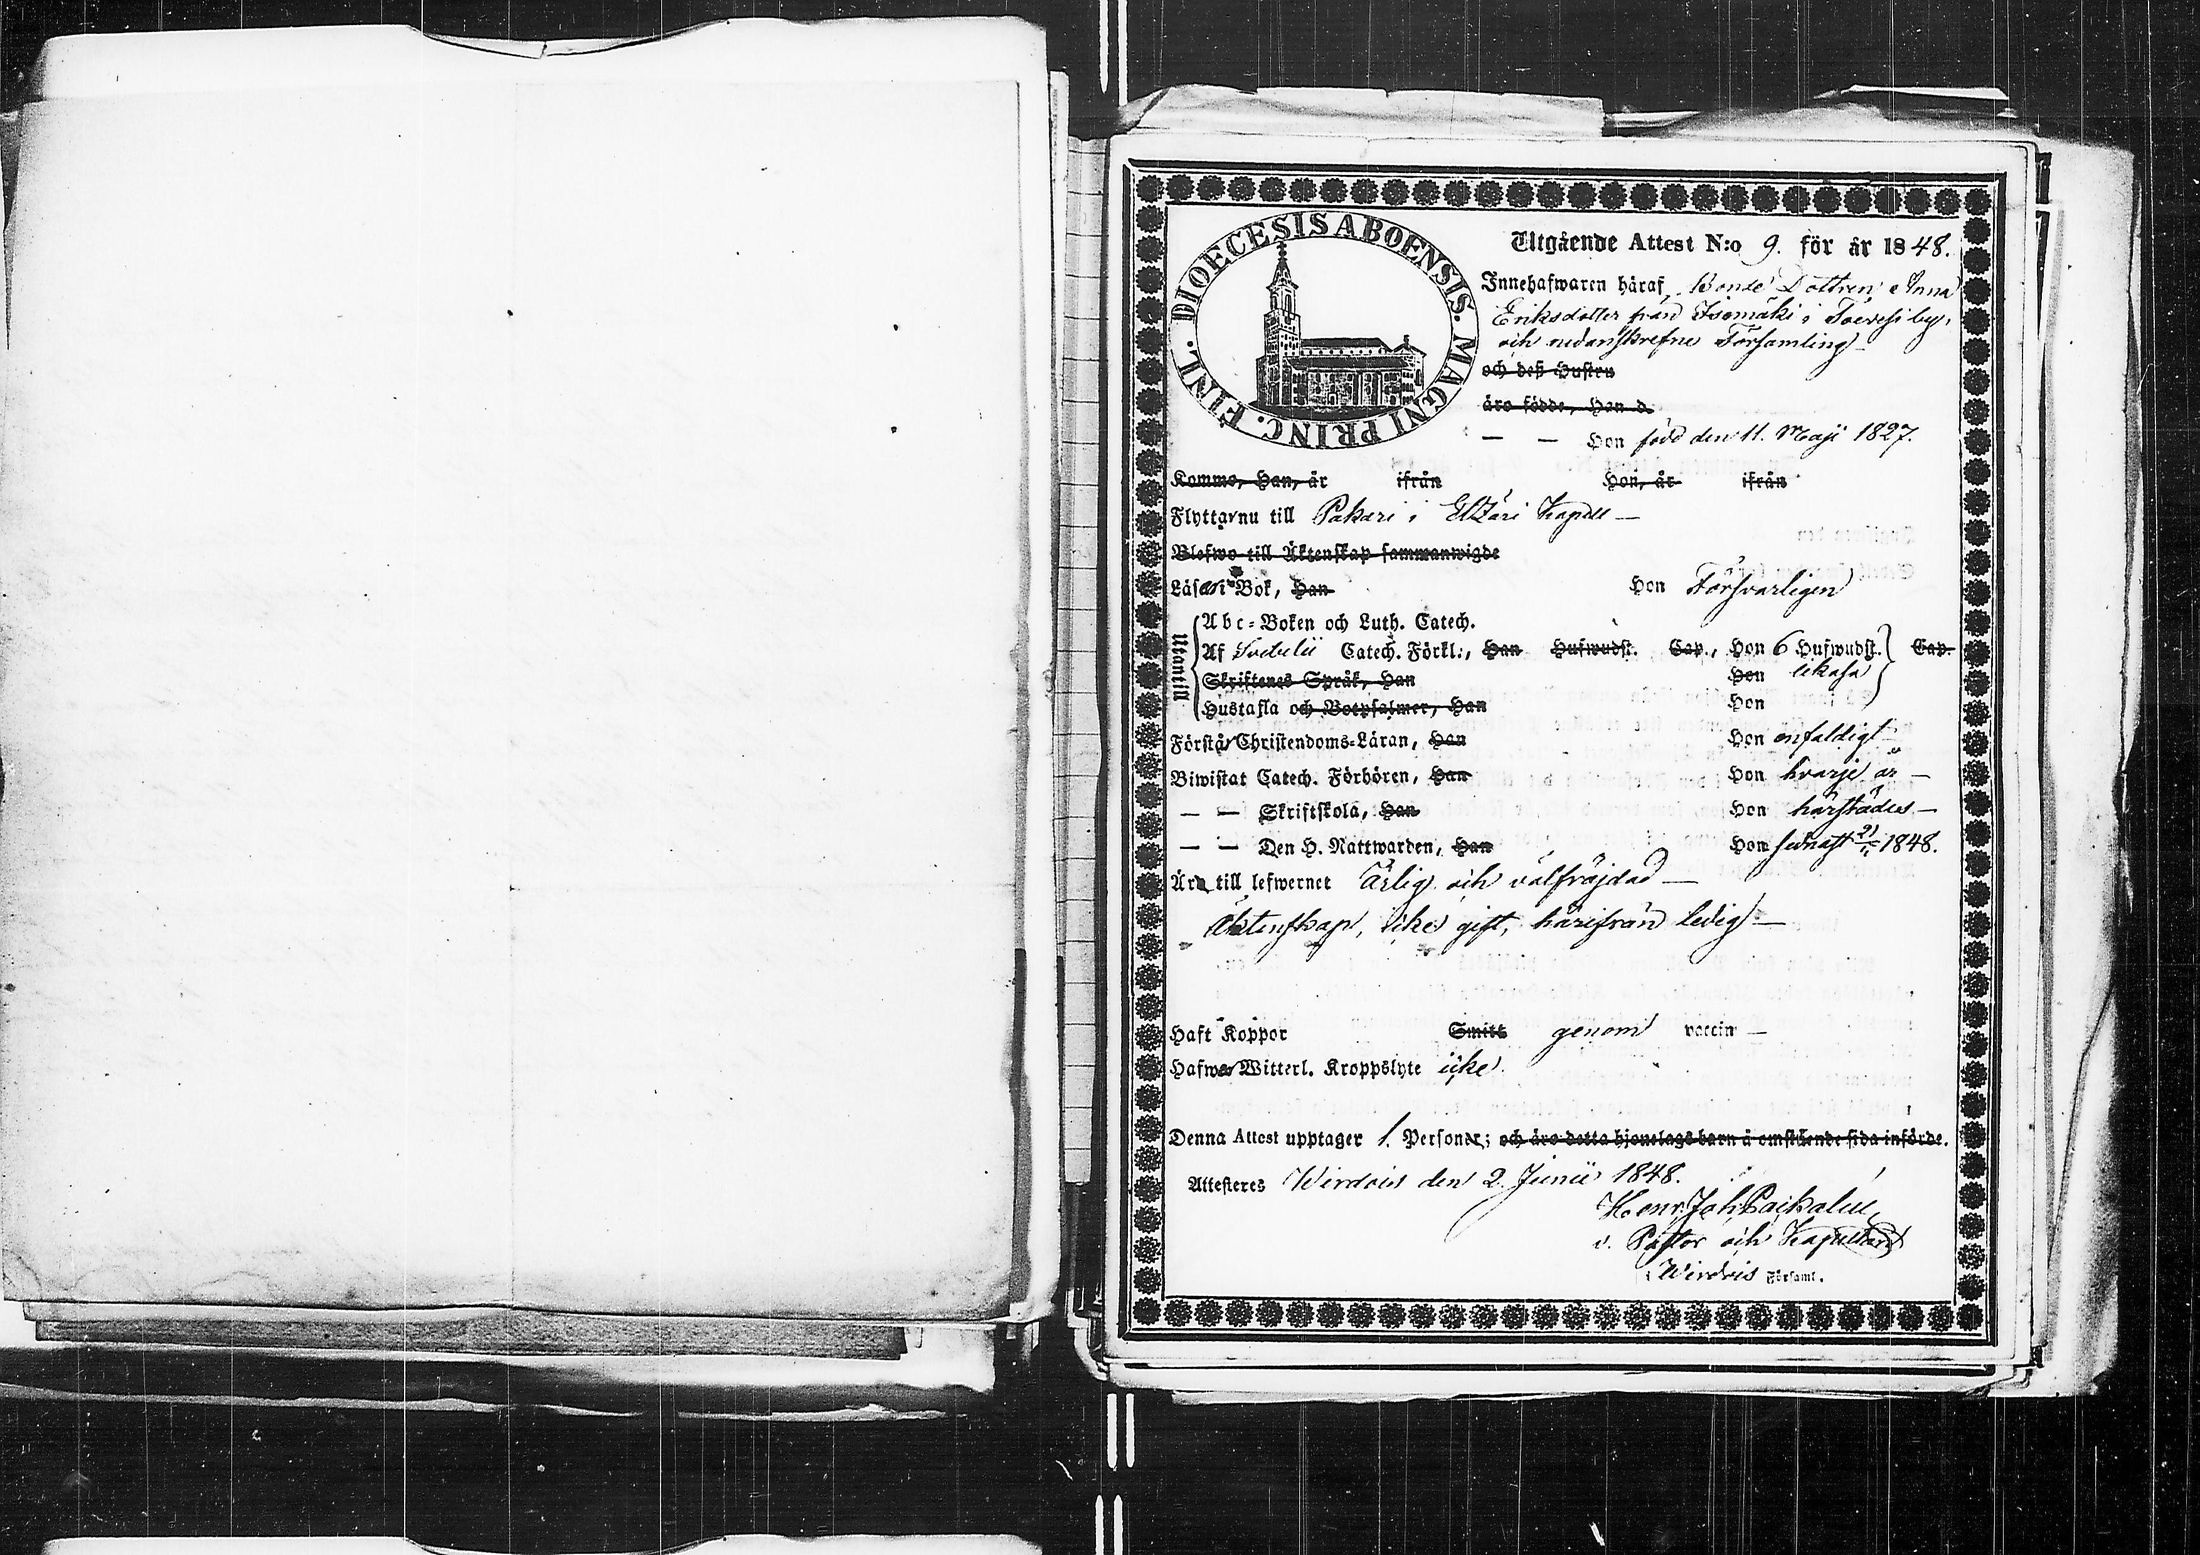 DIOECESIS ABOENSIS. MAGNI PRINC. FINL.
Utgående Attest N:o 9. för år 1848.
Innehafwaren häraf, Bonde Dottren Anna
Eriksdotter från Isomäki i Toivesi by,
och nedanskrefne Församling
och deß Hustru
äro födde, Han d.
— — Hon född den 11. Maji 1827.
Kommo, Han, år ifrån Hon, år ifrån
Flyttar nu till Pakari i Etzäri Kapell —
Blefwo till Äktenskap sammanwigde
Läser i Bok, Han Hon Försvarligen
Utantill
Abc-Boken och Luth. Catech.
Af Svebelii Catech. Förkl:, Han Hufwudst. Cap., Hon 6 Hufwudst. Cap.
Skriftenes Språk, Han Hon likaså
Hustafla och Botpsalmer, Han Hon
Förstår Christendoms-Läran, Han Hon enfaldigt
Biwistat Catech. Förhören, Han Hon hvarje år —
— — Skriftskola, Han Hon härstädes —
— — Den H. Nattwarden, Han Hon senast 1848.
Är till lefwernet Ärlig och välfräjdad —
Äktenskap, icke gift, härifrån ledig —
Haft Koppor Smitt genom vaccin —
Hafwer Witterl. Kroppslyte icke
Denna Attest upptager 1. Personer; och äro detta hjonelags barn å omstående sida införde.
Attesteres Wirdois den 2. Junii 1848.
Henr. Joh.
v. Pastor och Kapellan
i Wirdois Församl.